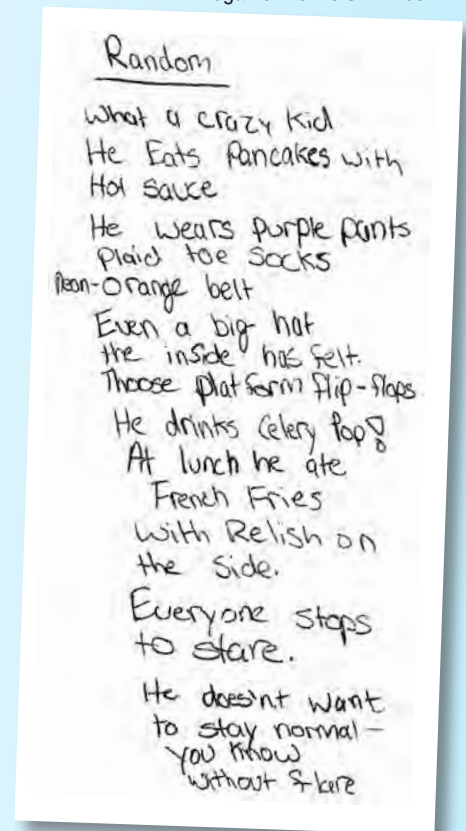 Random
What a crazy kid
He Eats Pancakes with
Hot sauce
He wears purple pants
plaid toe socks
neon-orange belt
Even a big hat
the inside has felt.
Thoose platform flip-flops
He drinks Celery Pop!
At lunch he ate
French Fries
with Relish on
the side.
Everyone stops
to stare.
He does'nt want
to stay normal-
you know
without flare